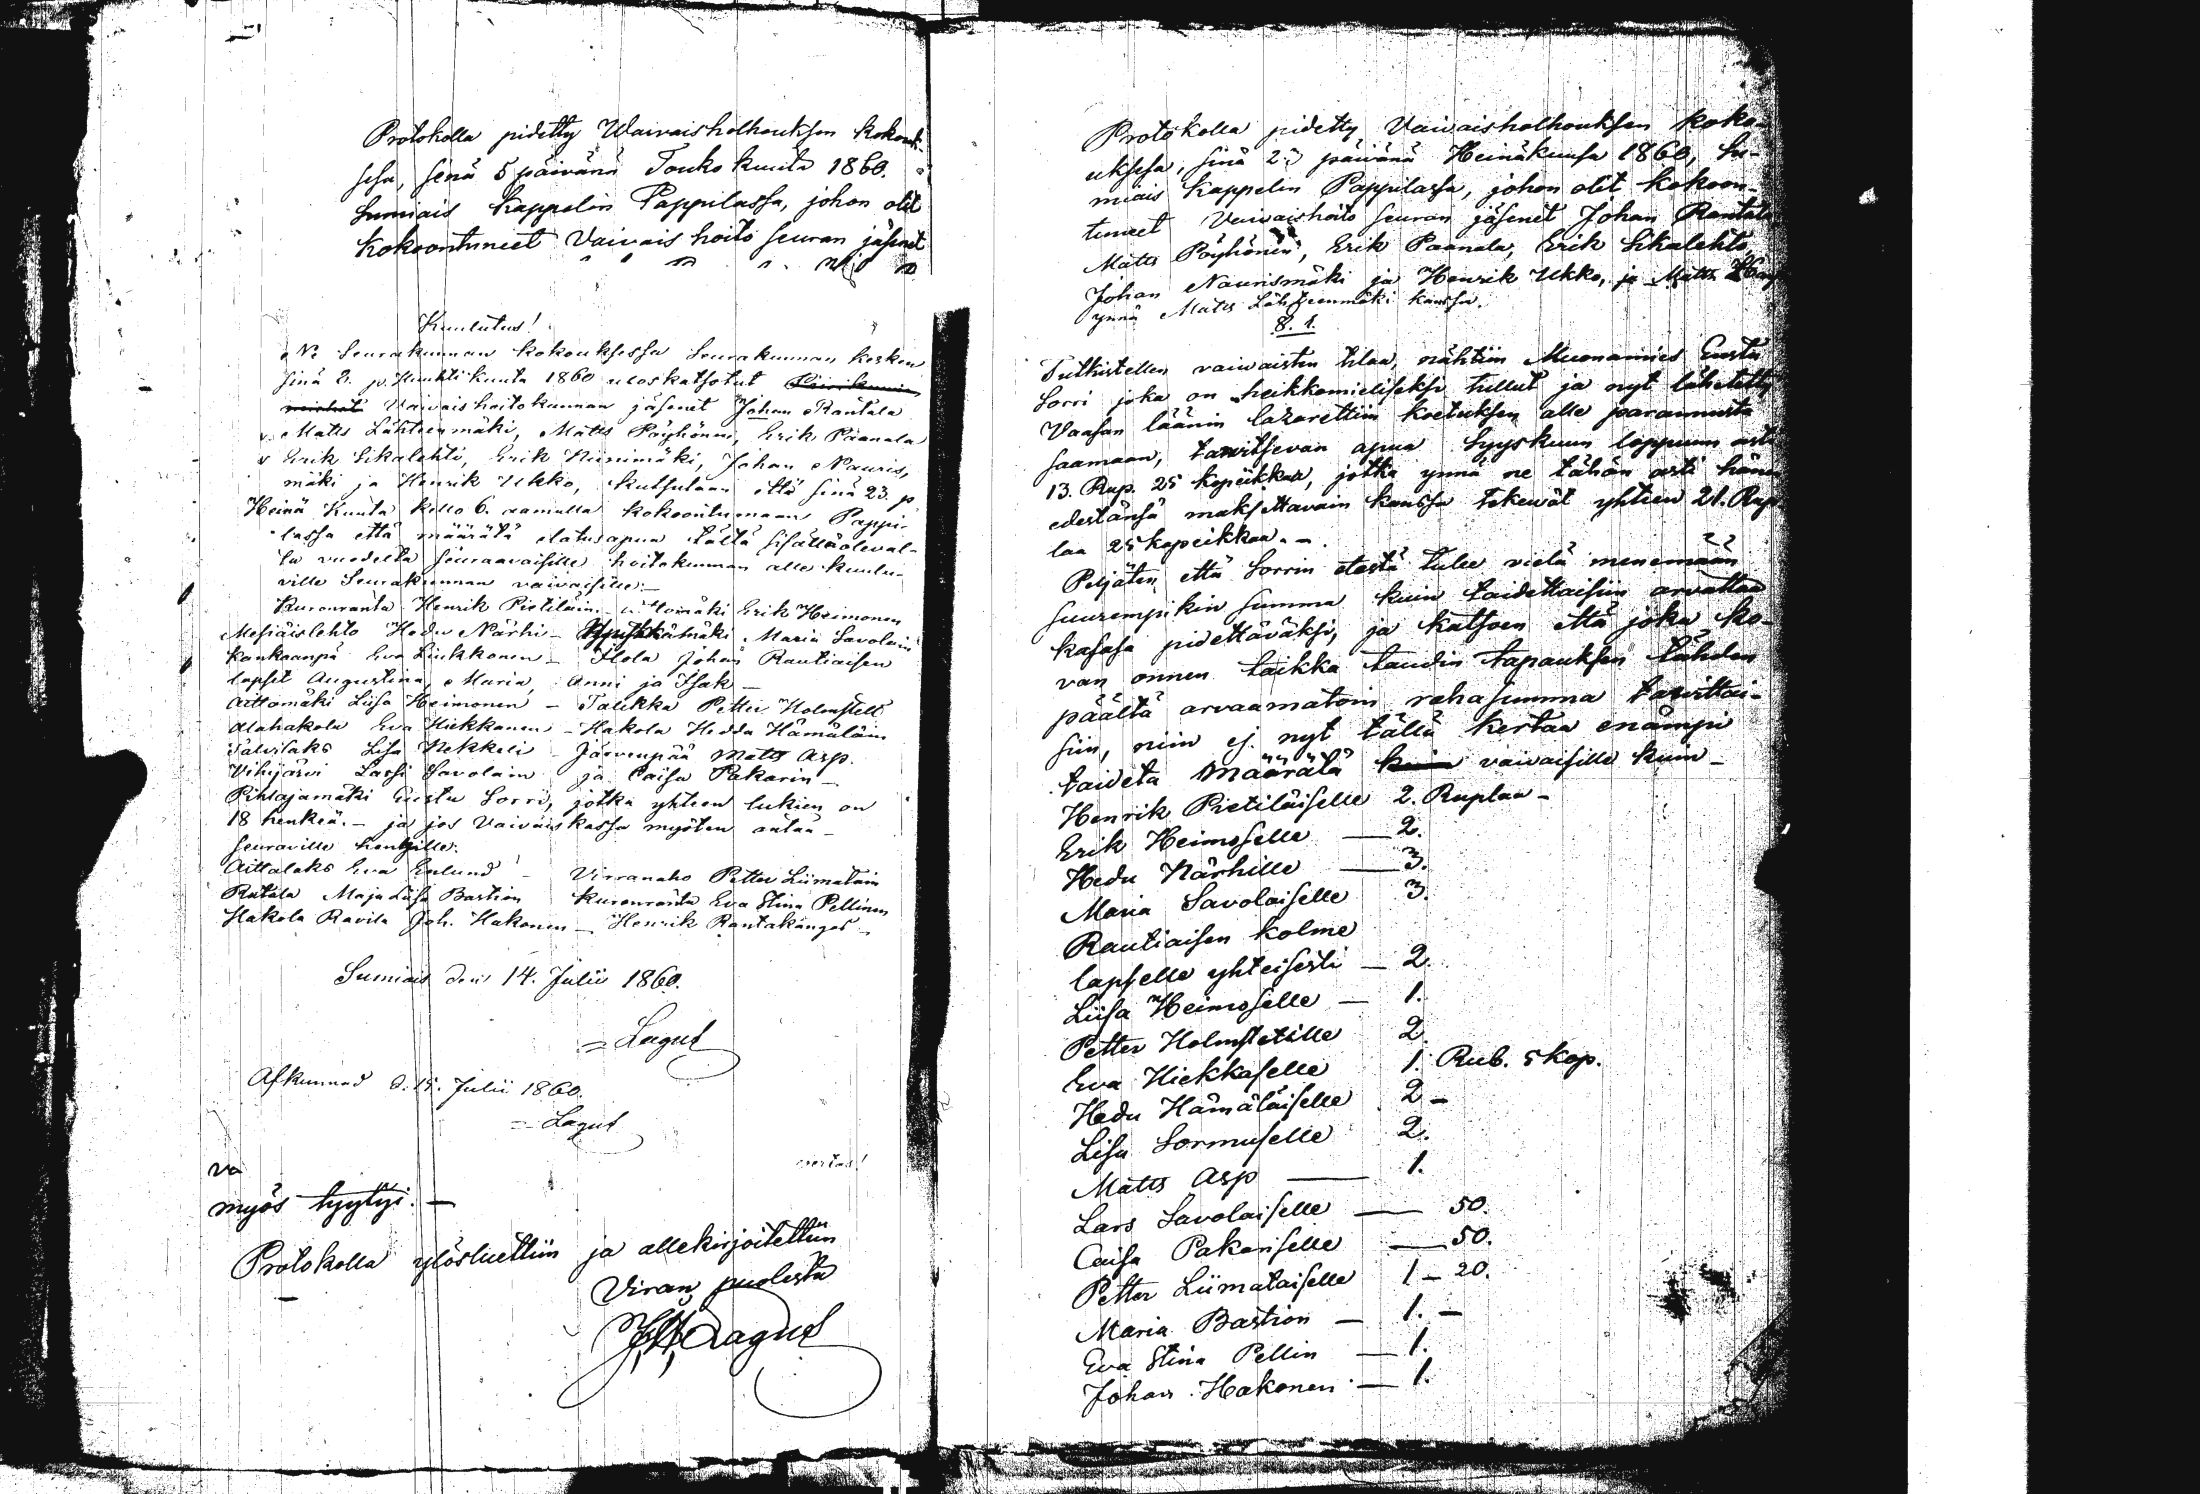 Protokolla pidetty Waivaisholhouksen kokouk-
sesa, senä 5 päivänä Touko kuuta 1860.
Sumiais kappelin Pappilassa, johon olit
kokoontuneet Vaivais hoito seuran jäsenet
Kuulutus!
Ne Seurakunnan kokouksessa Seurakunnan kesken
sinä 8. p. Huhtikuuta 1860 uloskatsotut
Vaivaishoitokunnan jäsenet Johan Rantala
Matts Lähteenmäki, Matts Pöyhönen, Erik Paanala
Erik Sikalehti, Erik Niinimäki, Johan Nauris,
mäki ja Henrik Ukko, kutsutaan että sinä 23. p
Heinä Kuuta kello 6. aamulla kokoontumaan Pappi-
lassa että määrätä elatusapua tältä sisälläoleval-
ta vuodelta seuraavaisille hoitokunnan alle kuulu-
ville Seurakunnan vaivaisille:-
Kuronranta Henrik Pietiläin - Aittomäki Erik Heimonen
Mesiäislehto Hedu Närhi - Maria Savolain
Kankaanpä Eva Liukkonen - Ilola Johan Rautiaisen
lapset Augustina, Maria, Anni ja Isak -
Aittomäki Liisa Heimonen - Talikka Petter Holmstell
Alahakola Eva Hiekkanen - Hakola Hedda Hämäläin
Salvilaks Lisa Nekkeli - Järvenpää Matts Asp.
Vihijärvi Lassi Savolain ja Caisa Pakarin -
Pihlajamäki Gustu Sorri, jotka yhteen lukien on
18 henkeä. - ja jos Vaivaiskassa myöten antaa -
seuraville hengille:
Aittalaks Eva Enlund - Virranaho Petter Liimatain
Ratala Maja Lisa Bastion Kuronranta Eva Stina Pellinen
Hakola Ravila Joh. Hakonen - Henrik Rantakangas -
Sumiais den 14. Julii 1860.
= Lagus
Afkunnad d. 15. Julii 1860.
= Lagus
va
myös tyytyi. -
Protokolla ylösluettiin ja allekirjoitettiin
Viran puolesta
Lagus
Protokolla pidetty Vaivaisholhouksen koko-
uksesa, sinä 23 päivänä Heinäkuusa 1860, Su-
miais Kappelin Pappilassa, johon olit kokoon-
tuneet Vaivaishoito seuran jäsenet Johan Rantala
Matts Pöyhönen, Erik Paanala, Erik Sikalehto,
Johan Naurismäki ja Henrik Ukko, ja Matts
ynnä Matts Lähteenmäki kanssa.
§. 1.
Tutkistellen vaivaisten tilaa, nähtiin Muonamies Gustu
Sorri joka on heikkomieliseksi tullut ja nyt lähetetty
Vaasan läänin lazarettiin koetuksen alle parannusta
saamaan, tarvitsevan apua Syyskuun loppuun asti
13. Rup. 25 kopeikkaa, jotka ynnä ne tähän asti hänen
edestänsä maksettavain kanssa tekevät yhteen 21. Rup-
laa 25 kopeikkaa. -
Peljäten että Sorrin etestä tulee vielä menemään
suurempikin summa kuin taidettaisiin arvattaa
kasasa pidettäväksi, ja katsoen että joka ko-
van onnen taikka taudin tapauksen tähden
päältä arvaamatoin rahasumma tarvittai-
siin, niin ej nyt tällä kertaa enämpi
taideta määrätä vaivaisille kuin -
Henrik Pietiläiselle 2. Ruplaa -
Erik Heimoselle - 2.
Hedu Närhille - 3.
Maria Savolaiselle 3.
Rautiaisen kolme
lapselle yhteisesti - 2.
Liisa Heimoselle - 1.
Petter Holmstetille 2.
Eva Hiekkaselle 1. Rub. 5 kop.
Hedu Hämäläiselle 2 -
Lisa Sormuselle 2.
Matts Asp - 1.
Lars Savolaiselle - 50.
Caisa Pakariselle - 50.
Petter Liimataiselle 1 - 20.
Maria Bastion - 1. -
Eva Stina Pellin - 1.
Johan Hakonen - 1.